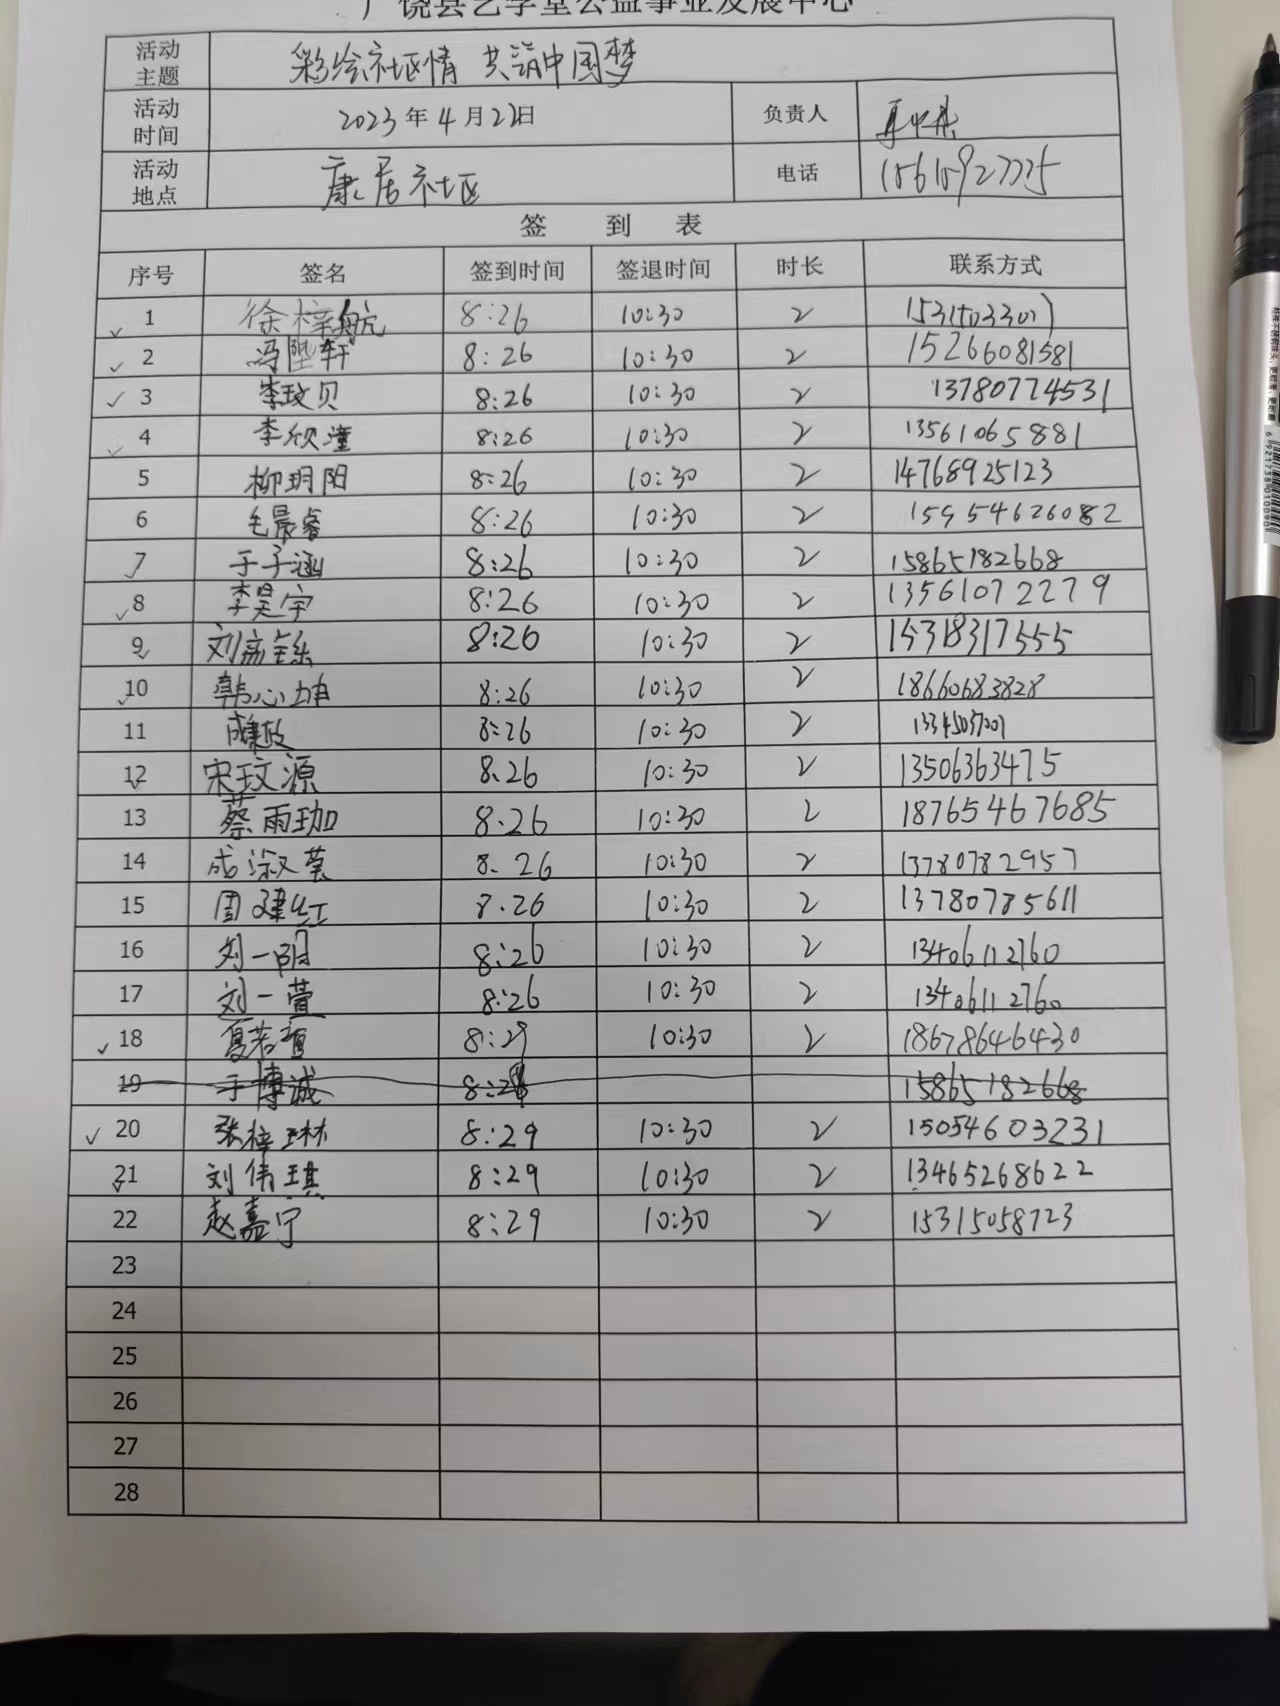 广饶县艺学堂公益事业发展中心
活动主题 彩绘社区情 共筑中国梦
活动时间 2023年4月22日 负责人
活动地点 康居社区 电话
签 到 表
序号 签名 签到时间 签退时间 时长 联系方式
1 徐梓航 8:26 10:30 2
2 冯 轩 8:26 10:30 2 15266081581
3 李玟贝 8:26 10:30 2 13780774531
4 李欣潼 8:26 10:30 2 13561065881
5 柳玥阳 8:26 10:30 2 14768925123
6 毛晨睿 8:26 10:30 2 15954626082
7 于子涵 8:26 10:30 2 15865182668
8 李昊宇 8:26 10:30 2 13561072279
9 刘 8:26 10:30 2 15318317555
10 韩心坤 8:26 10:30 2 18660683828
11 8:26 10:30 2
12 宋玟源 8.26 10:30 2 13506363475
13 蔡雨珈 8.26 10:30 2 18765467685
14 成淑 8.26 10:30 2 13780782957
15 周建红 8.26 10:30 2 13780785611
16 刘一明 8:26 10:30 2 13406112760
17 刘一萱 8:26 10:30 2 13406112760
18 夏若 8:29 10:30 2 18678646430
19 于博诚 15865182668
20 张梓琳 8:29 10:30 2 15054603231
21 刘伟琪 8:29 10:30 2 13465268622
22 赵嘉宁 8:29 10:30 2 15315058723
23
24
25
26
27
28
6921738010090